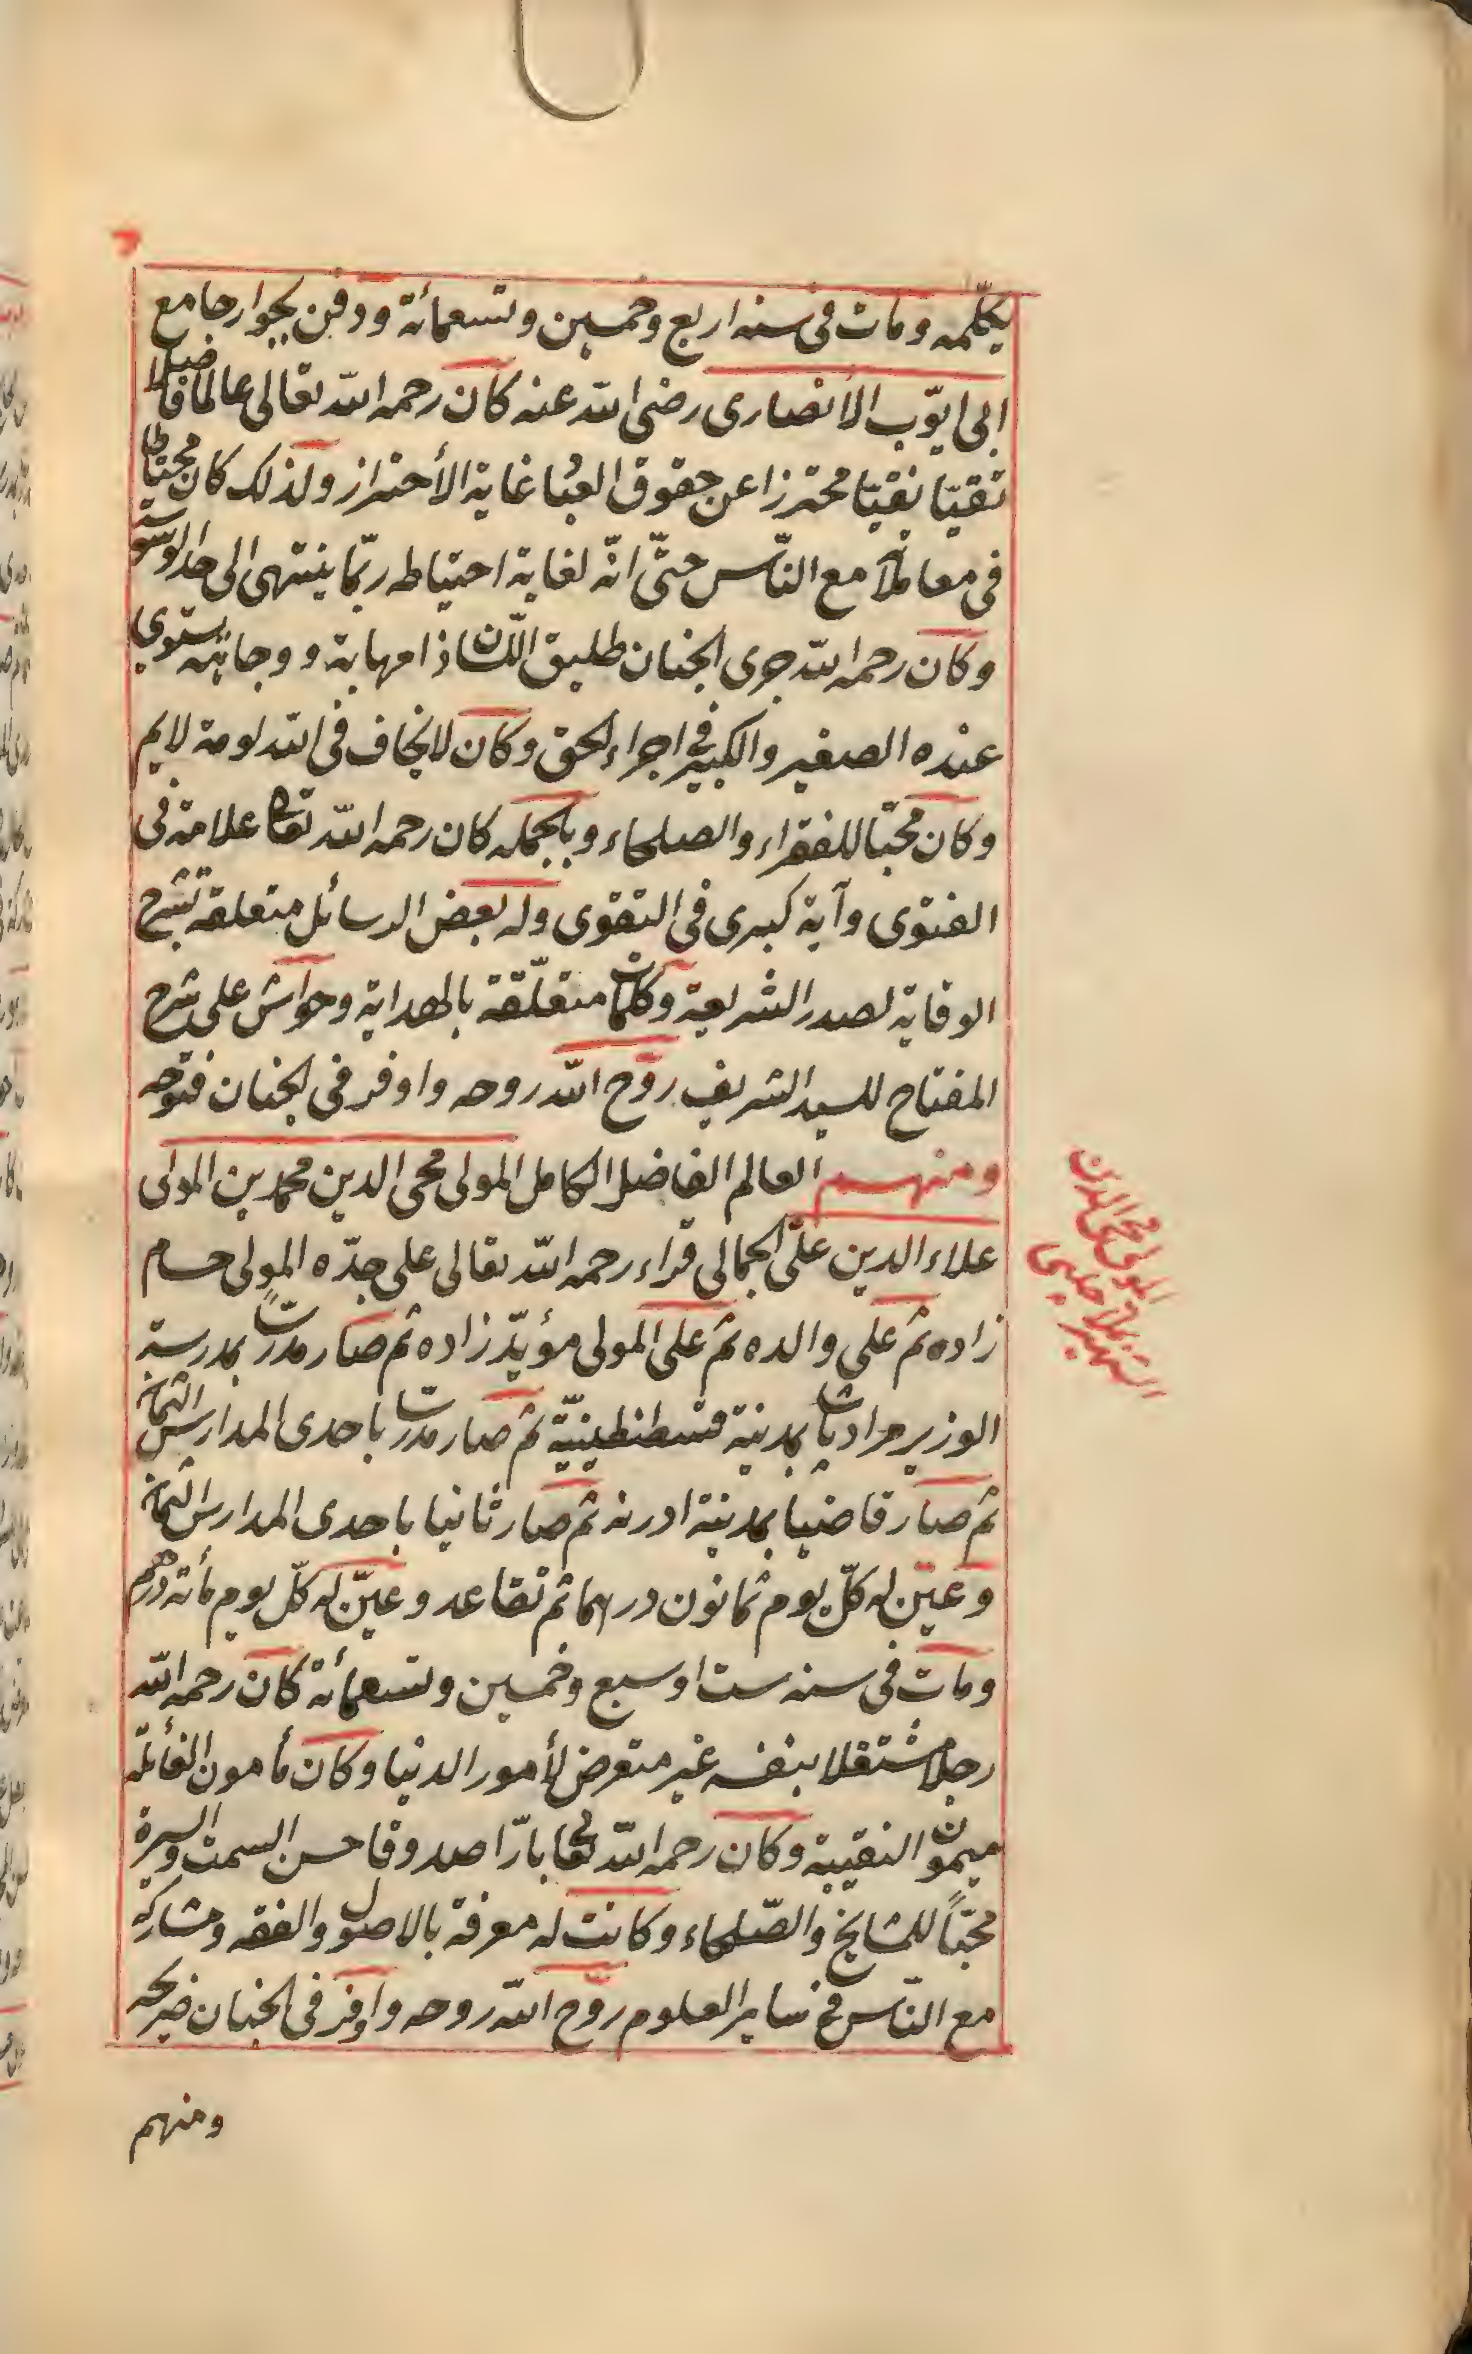 يكلمه ومات فى سنه اربع وخمسين وتسعمائة ودفن بجوار جامع
ابى ايّوب الأنصارى رضى الله عنه كان رحمه الله تعالى عالما فاضلا
تقيّا نقيّا محترزا عن حقوق العباد غاية الأحتراز ولذلك كان محتاطا
فى معاملاته مع النّاس حتّى انّه لغاية احتياطه ربّما ينتهى الى حد الوسوسة
وكان رحمه الله جرى الجنان طليق اللسان ذا مهابة ووجاهة يستوي
عنده الصغير والكبير فى اجراء الحق وكان لا يخاف فى الله لومة لايم
وكان محبّا للفقراء والصلحاء وبالجمله كان رحمه الله تعالى علامة فى
الفتوى وآية كبرى فى التقوى وله بعض الرسائل متعلقة بشرح
الوقاية لصدر الشريعة وكلمات متعلّقة بالهداية وحواش على شرح
المفتاح للسيد الشريف روّح الله روحه واوفر فى الجنان فتوحه
ومنهم العالم الفاضل الكامل المولى محى الدين محمد بن المولى
المولى محى الدين
الشهير بملا چلبى
علاء الدين علىّ الجمالى قراء رحمه الله تعالى على جدّه المولى حسام
زاده ثم على والده ثم على المولى مؤيّد زاده ثم صار مدرسا بمدرسة
الوزير مراد باشا بمدينة قسطنطينيّة ثم صار مدرسا باحدى المدارس الثمان
ثم صار قاضيا بمدينة ادرنه ثم صار ثانيا باحدى المدارس الثمان
وعيّن له كلّ يوم ثمانون درهما ثم تقاعد وعيّن له كلّ يوم مأئة درهم
ومات فى سنه ست او سبع وخمسين وتسعمائة كان رحمه الله
رجلا مشتغلا بنفسه غير متعرض لأمور الدنيا وكان مأمون الغائلة
ميمون النقيبة وكان رحمه الله تعالى بارّا صدوقا حسن السمت والسيرة
محبّاً للمشايخ والصّلحاء وكانت له معرفة بالاصول والفقه ومشاركة
مع النّاس فى ساير العلوم روّح الله روحه واوفر فى الجنان ضريحه
ومنهم